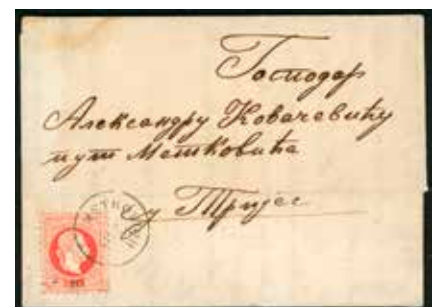 Господар
Александру Ковачевићу
пут Метковића
у Тријес